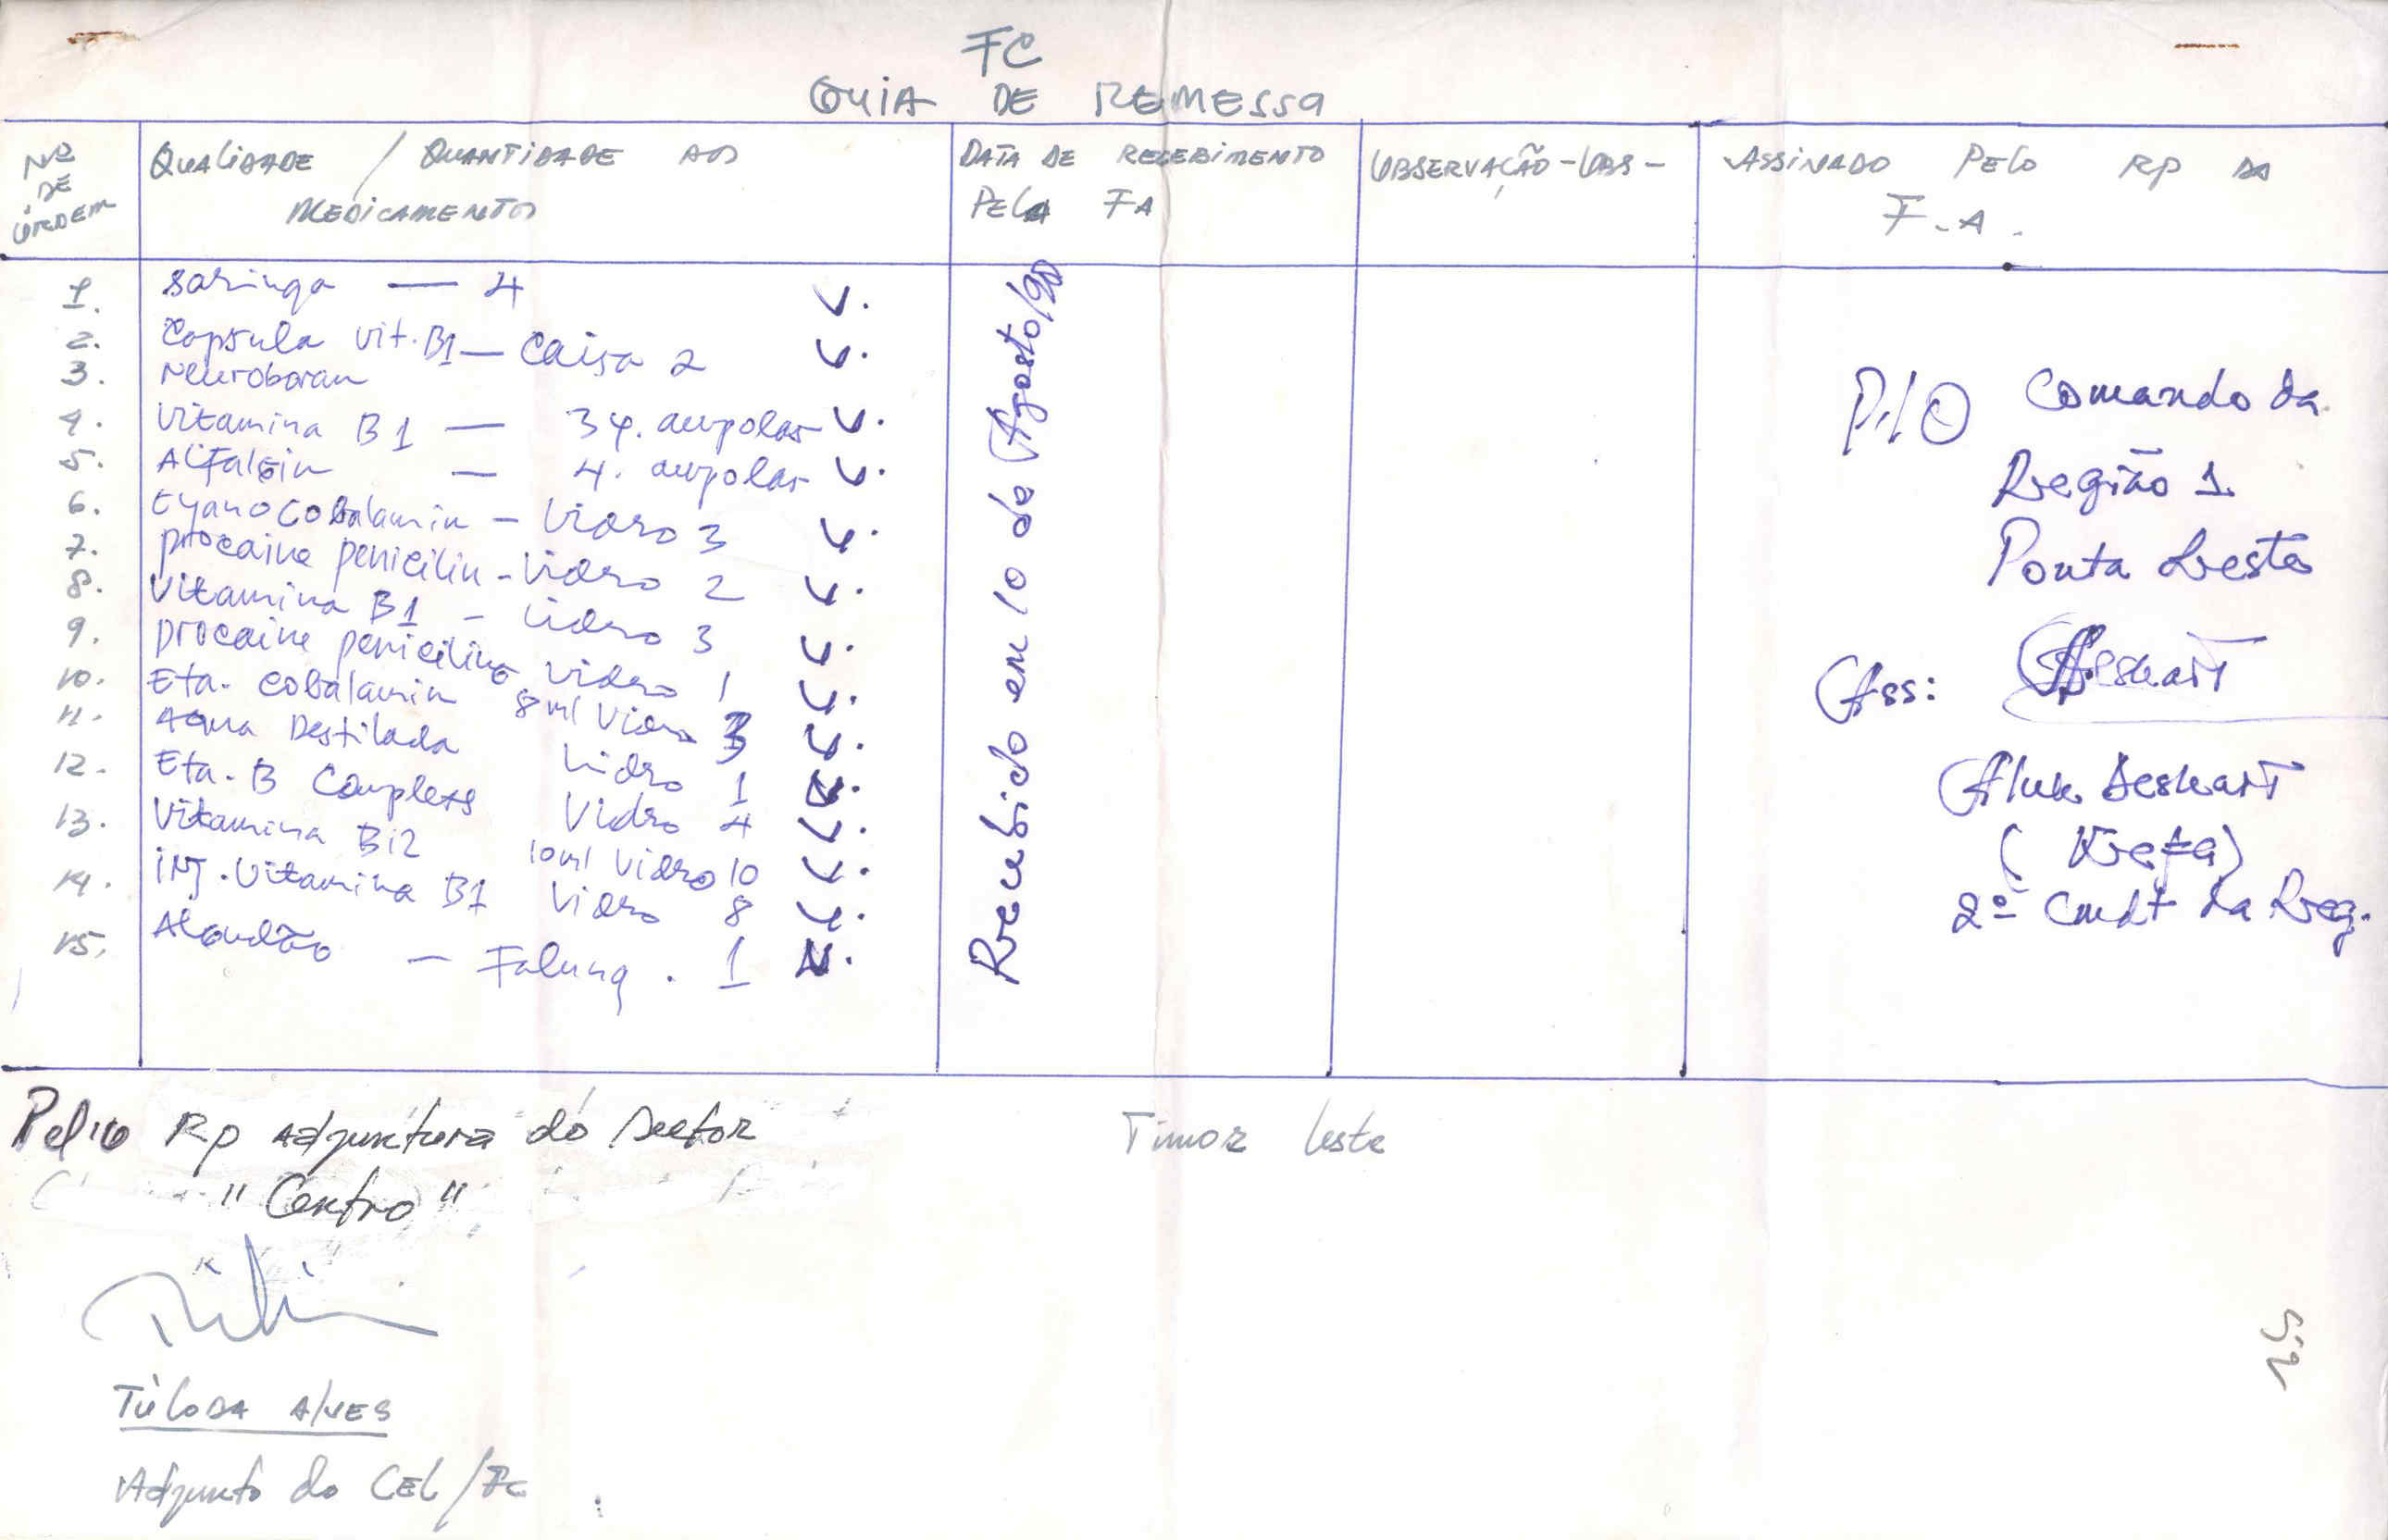 FC
GUIA DE REMESSA
Nº DE ORDEM
QUALIDADE / QUANTIDADE DOS
MEDICAMENTOS
DATA DE RECEBIMENTO
PELA FA
OBSERVAÇÃO-OBS-
ASSINADO PELO RP DA
F.A.
1. saringa — 4
2. Capsula vit. B1 — Caisa 2
3. Neuroboran
4. Vitamina B1 — 34. ampolas
5. — 4. ampolas
6. Cyanocobalamin - Vidro 3
7. procaine penicilin - Vidro 2
8. Vitamina B1 - Vidro 3
9. procaine penicilino Vidro 1
10. Eta. cobalamin 8 ml Vidro 3
11. Aqua Destilada Vidro 1
12. Eta. B Complexs Vidro 4
13. Vitamina B12 10 ml Vidro 10
14. inj. Vitamina B1 Vidro 8
15. Algudão — Falung. 1
Recebido em 10 de Agosto/90
P/O Comando da
Região 1
Ponta Leste
Ass:
Aluk Deskart
2º Cmdt da Reg.
Pel'O RP Adjuntura do Sector
"Centro"
Timor leste
Túloda Alves
Adjunto do CEL/FC